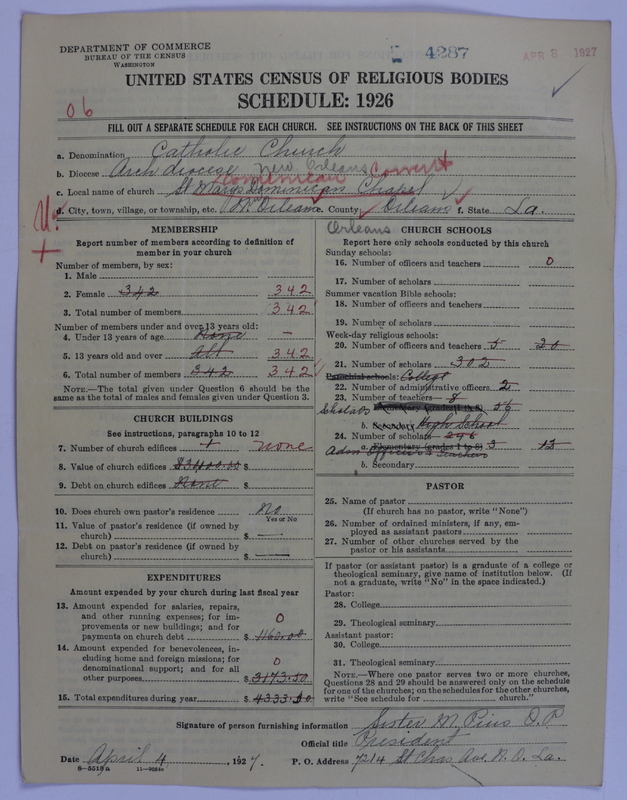 DEPARTMENT OF COMMERCE
BUREAU OF THE CENSUS
WASHINGTON
4287
APR 8 1927
UNITED STATES CENSUS OF RELIGIOUS BODIES
SCHEDULE: 1926
06
FILL OUT A SEPARATE SCHEDULE FOR EACH CHURCH. SEE INSTRUCTIONS ON THE BACK OF THIS SHEET
a. Denomination Catholic Church
b. Diocese Arch diocese New Orleans
Dominican Convent
c. Local name of church St Marys Dominican Chapel
d. City, town, village, or township, etc. N. Orleans e. County Orleans f. State La.
Orleans
MEMBERSHIP
Report number of members according to definition of
member in your church
Number of members, by sex:
1. Male
2. Female 342 342
3. Total number of members 342
Number of members under and over 13 years old:
4. Under 13 years of age None —
5. 13 years old and over All 342
6. Total number of members 342 342
NOTE.—The total given under Question 6 should be the
same as the total of males and females given under Question 3.
CHURCH BUILDINGS
See instructions, paragraphs 10 to 12
7. Number of church edifices 1 none
8. Value of church edifices $
9. Debt on church edifices None $
10. Does church own pastor's residence? No
Yes or No
11. Value of pastor's residence (if owned by
church) $ —
12. Debt on pastor's residence (if owned by
church) $ —
EXPENDITURES
Amount expended by your church during last fiscal year
13. Amount expended for salaries, repairs,
and other running expenses; for im-
provements or new buildings; and for
payments on church debt 0 $ 1160.00
14. Amount expended for benevolences, in-
cluding home and foreign missions; for
denominational support; and for all
other purposes 0 $ 3173.50
15. Total expenditures during year $ 4333.50
CHURCH SCHOOLS
Report here only schools conducted by this church
Sunday schools:
16. Number of officers and teachers 0
17. Number of scholars
Summer vacation Bible schools:
18. Number of officers and teachers
19. Number of scholars
Week-day religious schools:
20. Number of officers and teachers 5 20
21. Number of scholars 302
Parochial schools: College
22. Number of administrative officers 2
23. Number of teachers— 8
Scholars a. Elementary (grades 1 to 8) 56
b. Secondary High School
24. Number of scholars— 246
Adm Officers a. Elementary (grades 1 to 8) 3 13
Teachers
b. Secondary
PASTOR
25. Name of pastor
(If church has no pastor, write "None")
26. Number of ordained ministers, if any, em-
ployed as assistant pastors
27. Number of other churches served by the
pastor or his assistants
If pastor (or assistant pastor) is a graduate of a college or
theological seminary, give name of institution below. (If
not a graduate, write "No" in the space indicated.)
Pastor:
28. College
29. Theological seminary
Assistant pastor:
30. College
31. Theological seminary
NOTE.—Where one pastor serves two or more churches,
Questions 28 and 29 should be answered only on the schedule
for one of the churches; on the schedules for the other churches,
write "See schedule for church."
Signature of person furnishing information Sister M. Pius O.P.
Official title President
Date April 4, 1927. P. O. Address 7214 St Chas Ave. N. O. La.
8—5518a 11—9024a